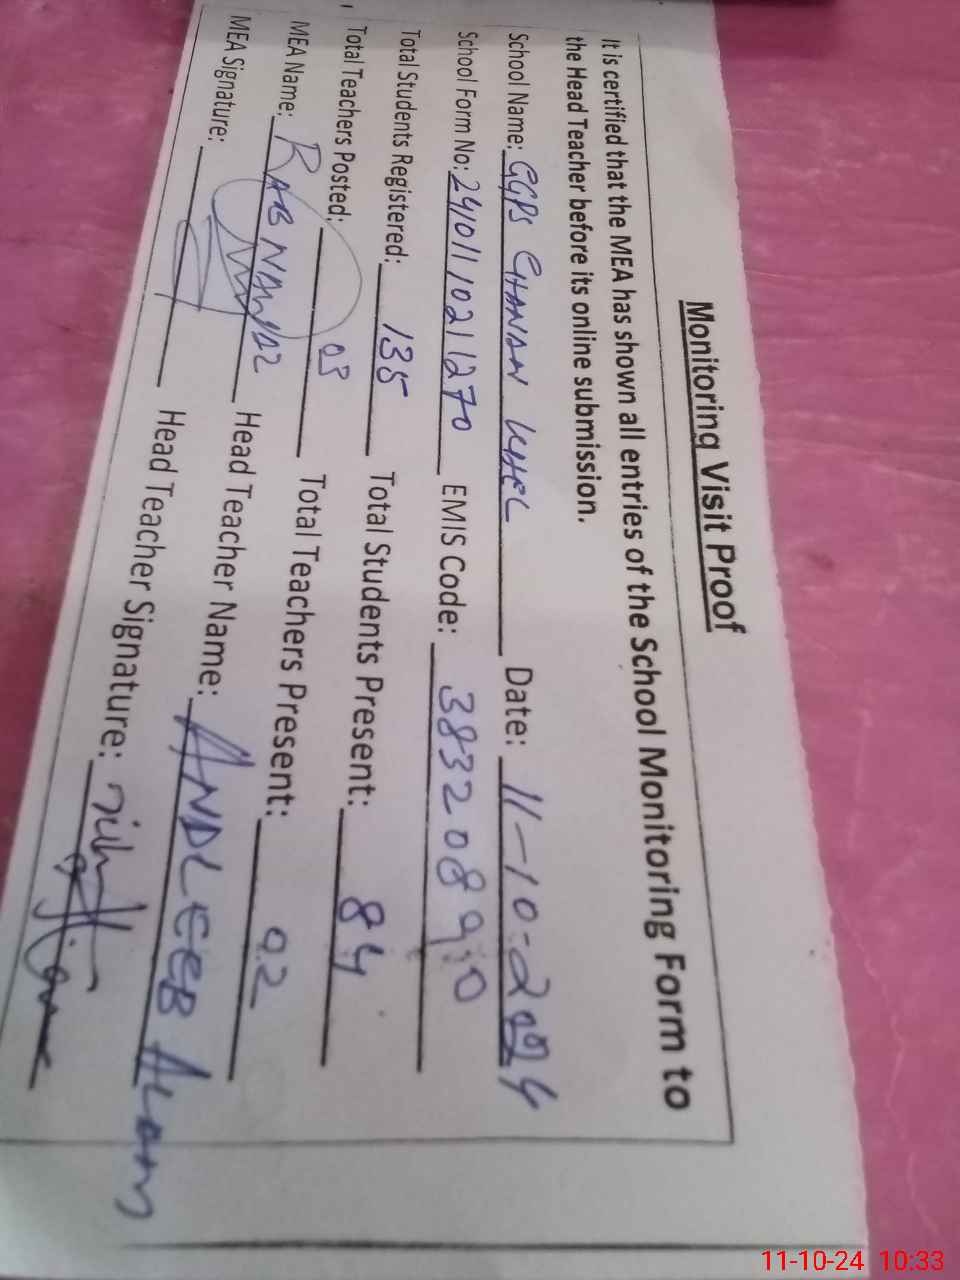 Monitoring Visit Proof
It is certified that the MEA has shown all entries of the School Monitoring Form to
the Head Teacher before its online submission.
School Name: GGPS CHANDAN KHEL Date: 11-10-2024
School Form No: 24101110211270 EMIS Code: 38320890
Total Students Registered: 135 Total Students Present: 84
Total Teachers Posted: 03 Total Teachers Present: 02
MEA Name: RAB NAWAZ Head Teacher Name: ANDLEEB ALAM
MEA Signature: Head Teacher Signature:
11-10-24 10:33